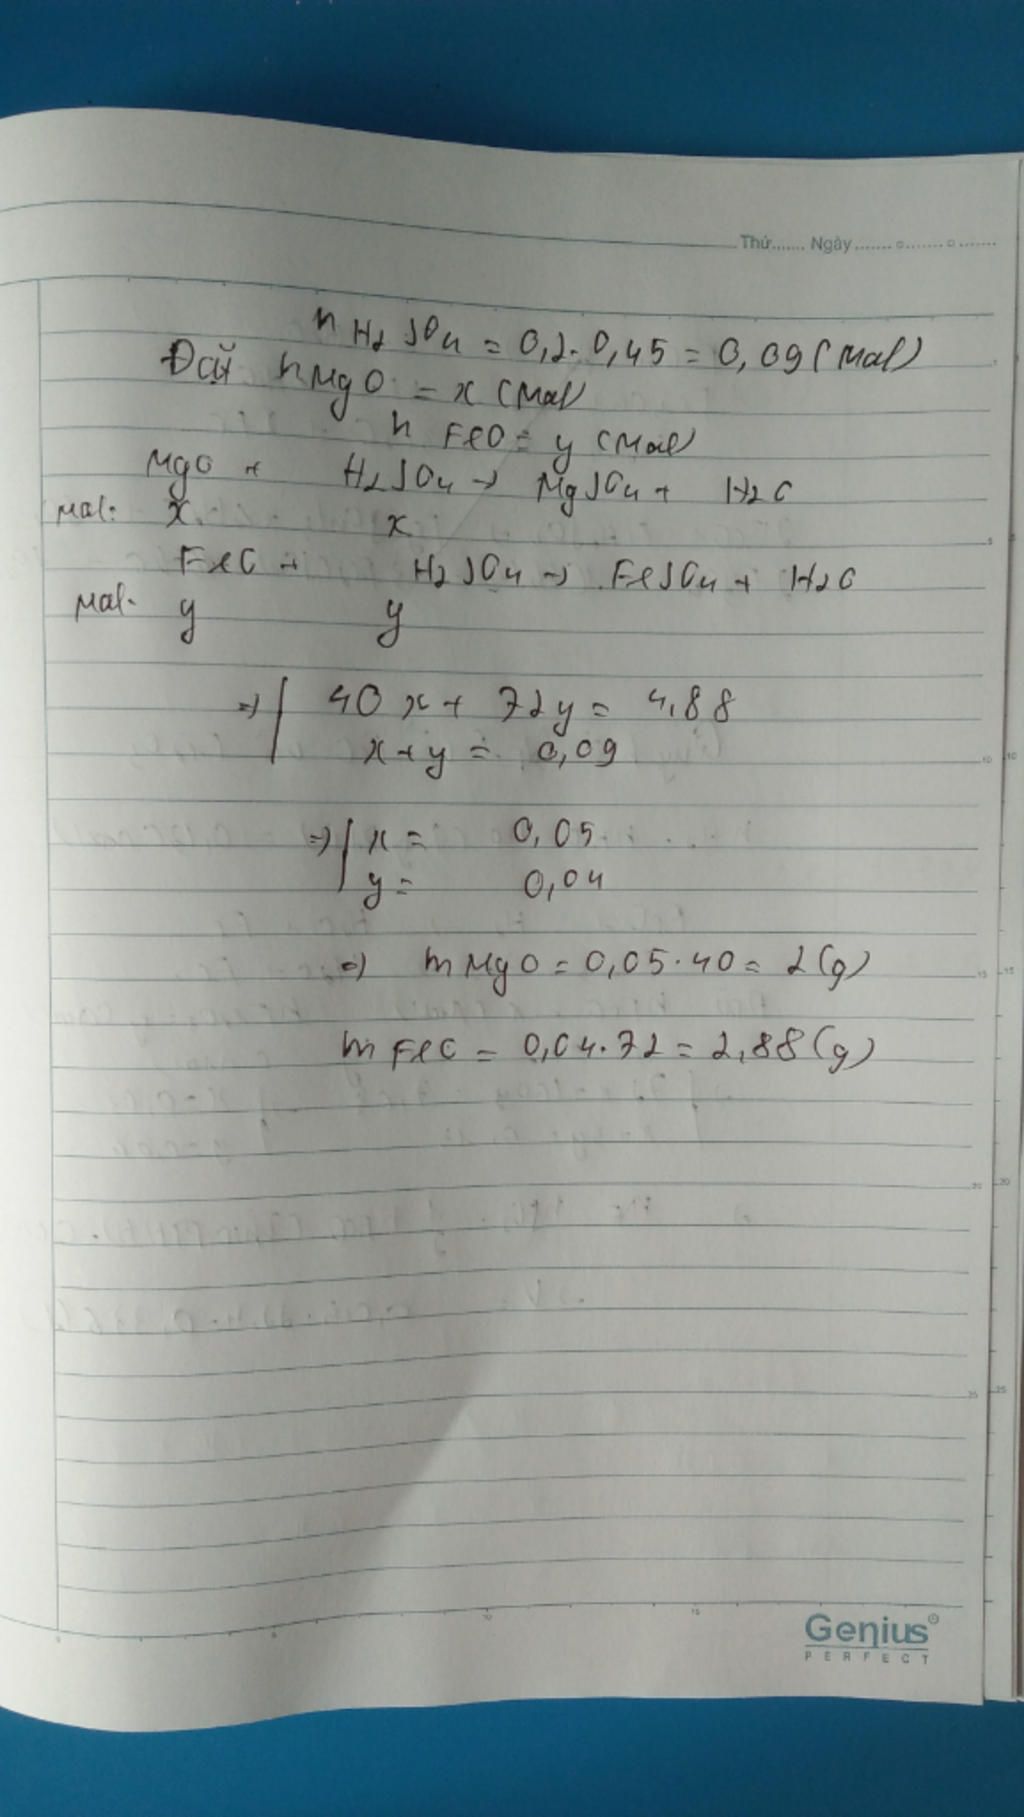 Thứ....... Ngày.......
n H2SO4 = 0,2.0,45 = 0,09 (mol)
Đặt nMgO = x (mol)
n FeO = y (mol)
MgO + H2SO4 → MgSO4 + H2O
mol: x x
FeO + H2SO4 → FeSO4 + H2O
mol: y y
=> 40x + 72y = 4,88
x + y = 0,09
=> x = 0,05
y = 0,04
=> mMgO = 0,05.40 = 2 (g)
m FeO = 0,04.72 = 2,88 (g)
Genius
PERFECT